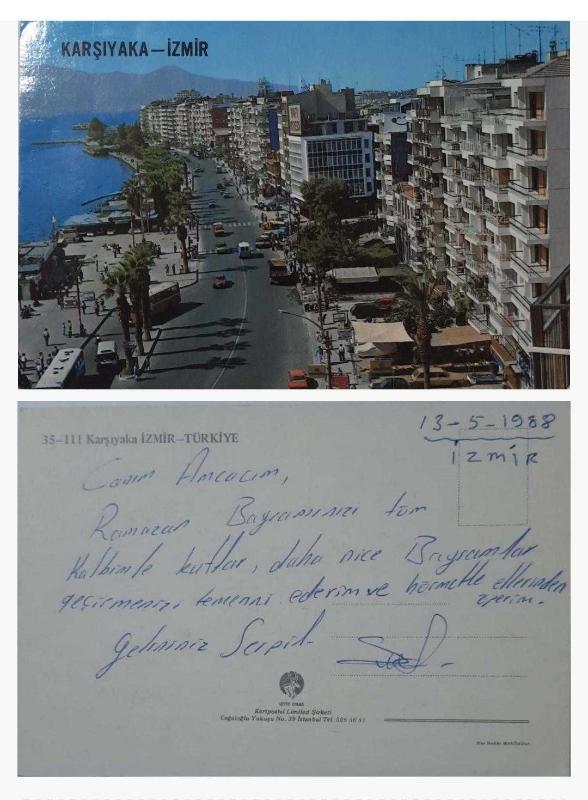 KARŞIYAKA–İZMİR
35–111 Karşıyaka İZMİR–TÜRKİYE
13-5-1988
İZMİR
Canım Amcacım,
Ramazan Bayramınızı tüm
Kalbimle kutlar, daha nice Bayramlar
geçirmenizi temenni ederim ve hürmetle ellerinden
öperim.
Gelininiz Serpil
Kartpostal Limited Şirketi
Cağaloğlu Yokuşu No. 39 İstanbul Tel.